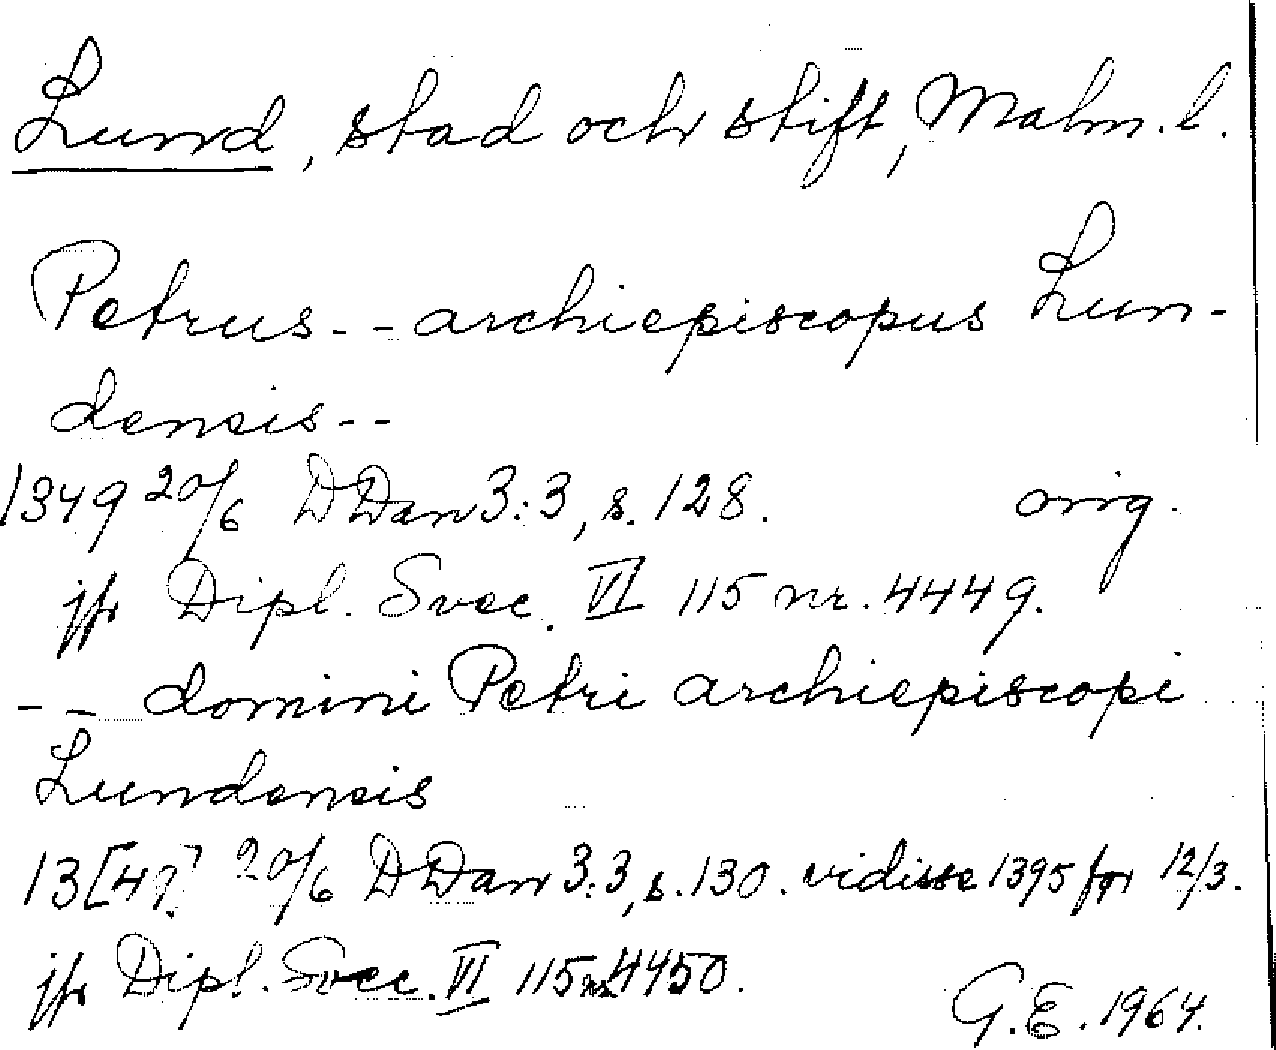 Lund, stad och stift, Malm. l.
Petrus - - archiepiscopus Lun-
densis - -
1349 20/6 DDan 3:3, s. 128. orig.
jfr Dipl. Svec. VI 115 nr. 4449.
- - domini Petri archiepiscopi
Lundensis
13[49] 20/6 DDan 3:3, s. 130. vidisse 1395 för 12/3.
jfr Dipl. Svec. VI 115 nr 4450.
G.E. 1964.